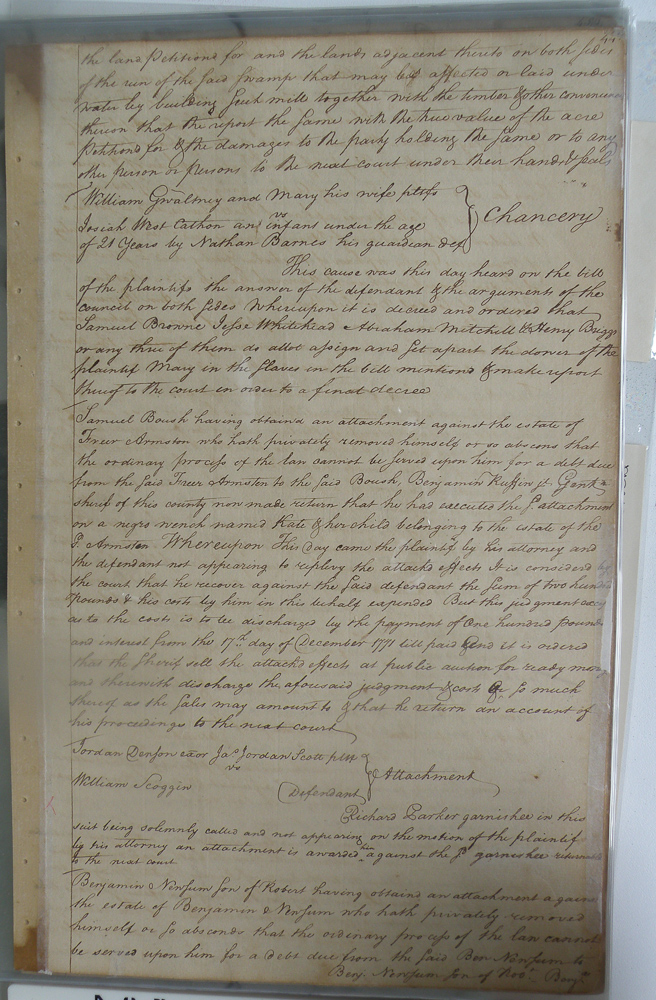 the land Petitiond for and the lands adjacent thereto on both sides
of the run of the said swamp that may be affected or laid under
water by building such mill together with the timber & other conveniences
thereon that the report the same with the true value of the acre
Petitiond for & the damages to the party holding the same or to any
other person or persons to the next court under their hands & seals
William Gwaltney and Mary his wife pltfs
vs
Chancery
Josiah West Cathon an infant under the age
of 21 Years by Nathan Barnes his guardian def
This cause was this day heard on the bill
of the plaintifs the answer of the defendant & the arguments of the
council on both sides Whereupon it is decreed and ordered that
Samuel Browne Jesse Whitehead Abraham Mitchell & Henry Briggs
or any three of them do allot assign and set apart the dower of the
plaintif Mary in the slaves in the bill mentiond & make report
thereof to the court in order to a final decree
Samuel Boush having obtaind an attachment against the estate of
Freer Armston who hath privately removed himself or so absconds that
the ordinary process of the law cannot be served upon him for a debt due
from the said Freer Armston to the said Boush, Benjamin Ruffin jr. Gentn
sherif of this county now made return that he had executed the sd. attachment
on a negro wench named Kate & her child belonging to the estate of the
sd. Armston. Whereupon This Day came the plaintif by his attorney and
the defendant not appearing to replevy the attachd effects It is considered by
the court that he recover against the said defendant the sum of two hundred
pounds & his costs by him in this behalf expended But this judgment
as to the costs is to be discharged by the payment of One hundred pounds
and interest from the 17th. day of December 1771 till paid And it is ordered
that the sherif sell the attachd effects at public auction for ready money
and therewith discharge the aforesaid judgment & costs or so much
thereof as the sales may amount to & that he return an account of
his proceedings to the next court
Jordan Denson exor Jas. Jordan Scott pltf
vs
Attachment
William Scoggin Defendant
Richard Parker garnishee in this
suit being solemnly called and not appearing on the motion of the plaintif
by his attorney an attachment is awarded him against the sd. garnishee returnable
to the next court
Benjamin Nensum son of Robert having obtaind an attachment again
the estate of Benjamin Nensum who hath privately removed
himself or so absconds that the ordinary process of the law cannot
be served upon him for a debt due from the said Ben Nensum to
Benj. Nensum son of Robt. Benjn.